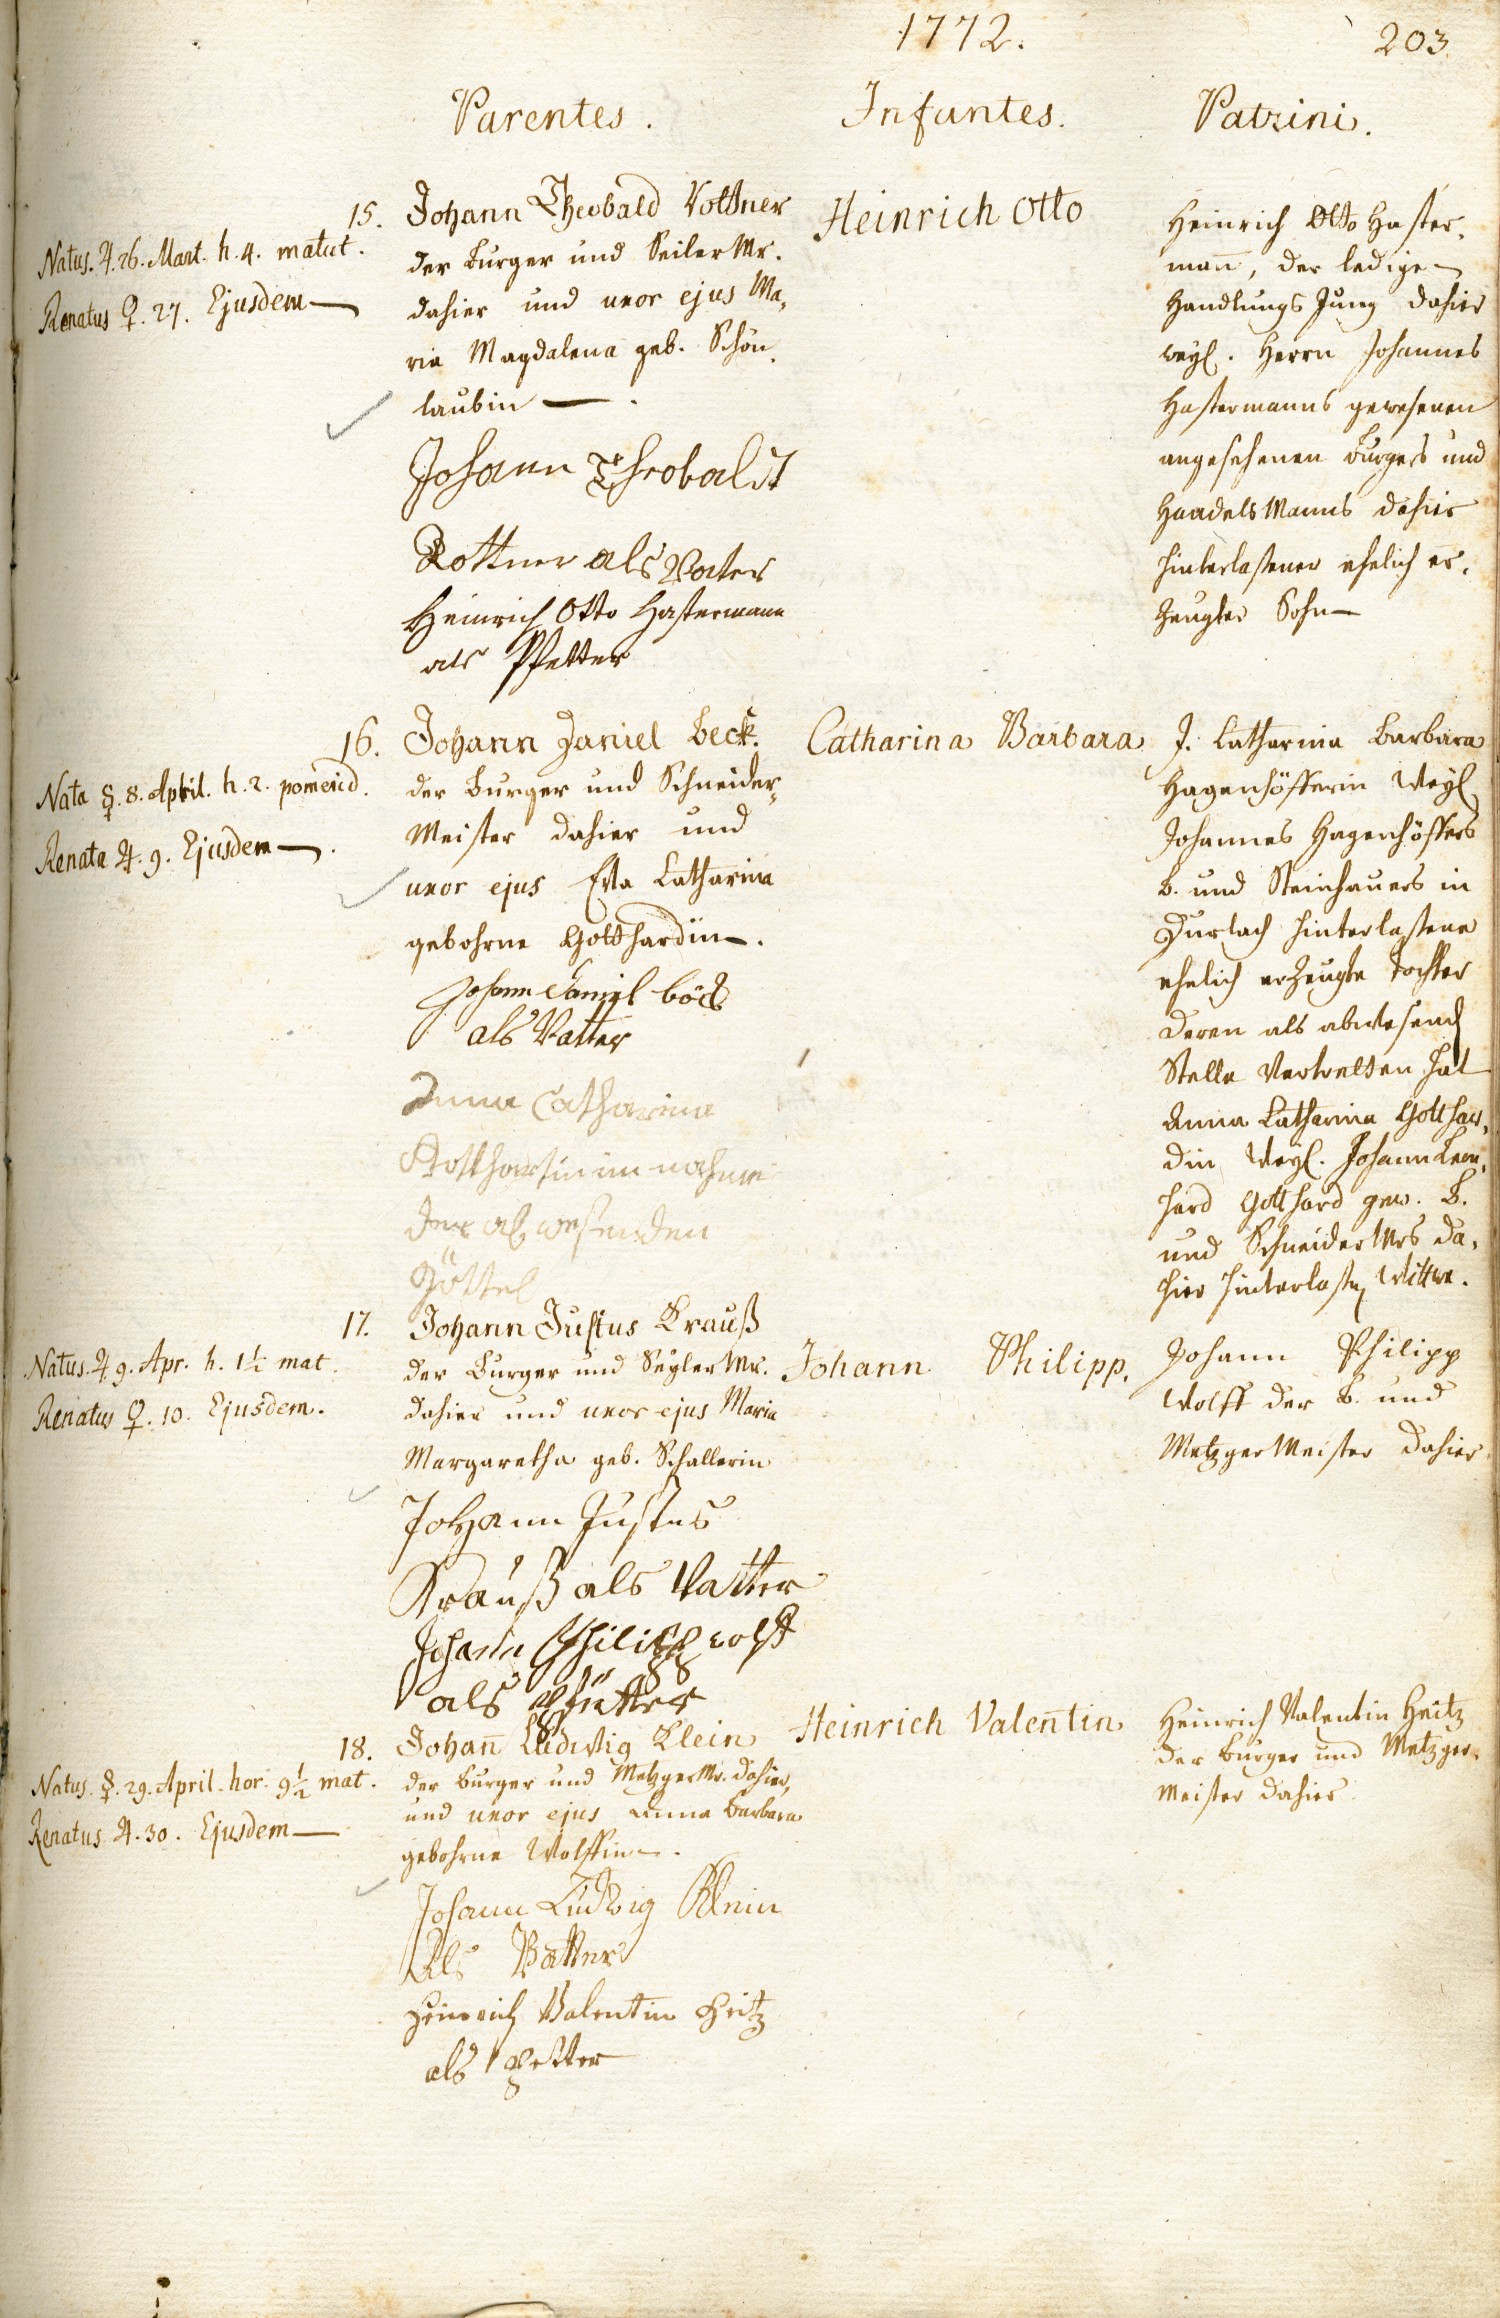 1772.
203.
Parentes.
Infantes.
Patrini.
15.
Natus. ♃. 26. Mart. h. 4. matut.
Renatus ♀. 27. Ejusdem —
Johann Theobald Rottner
der Burger und Seiler Mr.
dahier und uxor ejus Ma-
ria Magdalena geb. Schön-
laubin — .
Johann Theobaldt
Rottner als Vater
Heinrich Otto Hastermann
als Pfetter
Heinrich Otto
Heinrich Otto Haster-
mañ, der ledige
Handlungs Jung dahier
weyl. Herrn Johannes
Hastermanns gewesenen
angesehenen Burgers und
Handels Manns dahier
hinterlaßener ehelich er-
zeugter Sohn —
16.
Nata ☿. 8. April. h. 2. pomerid.
Renata ♃. 9. Ejusdem — .
Johann Daniel Beck.
der Burger und Schneider-
Meister dahier und
uxor ejus Eva Catharina
gebohrne Gotthardin — .
Johann Daniel böck
als Vatter
Anna Catharina
Gotthartin im nahmen
der abwesenden
Göttel
Catharina Barbara
J. Catharina Barbara
Hagenhöfferin weyl.
Johannes Hagenhöffers
B. und Steinhauers in
Durlach hinterlaßene
ehelich erzeugte Tochter
deren als abwesend
Stelle vertretten hat
Anna Catharina Gotthar-
din weyl. Johann Leon-
hard Gotthard gew. B.
und Schneider Mrs da-
hier hinterlaßn Wittwe.
17.
Natus. ♃. 9. Apr. h. 1½ mat.
Renatus ♀. 10. Ejusdem.
Johann Justus Krauß
der Burger und Seyler Mr.
dahier und uxor ejus Maria
Margaretha geb. Schallerin
Johann Justus
Krauß als Vatter
Johann Philipp wolff
als Pfetter
Johann Philipp.
Johann Philipp
Wolff der B. und
Metzger Meister dahier
18.
Natus. ☿. 29. April. hor. 9½ mat.
Renatus. ♃. 30. Ejusdem —
Johañ Ludwig Klein
der Burger und Metzger Mr. dahier,
und uxor ejus Anna Barbara
gebohrne Wolffin — .
Johann Ludwig Klein
Als Vatter
Heinrich Valentin Heitz
als Petter
Heinrich Valentin
Heinrich Valentin Heitz
der Burger und Metzger-
Meister dahier